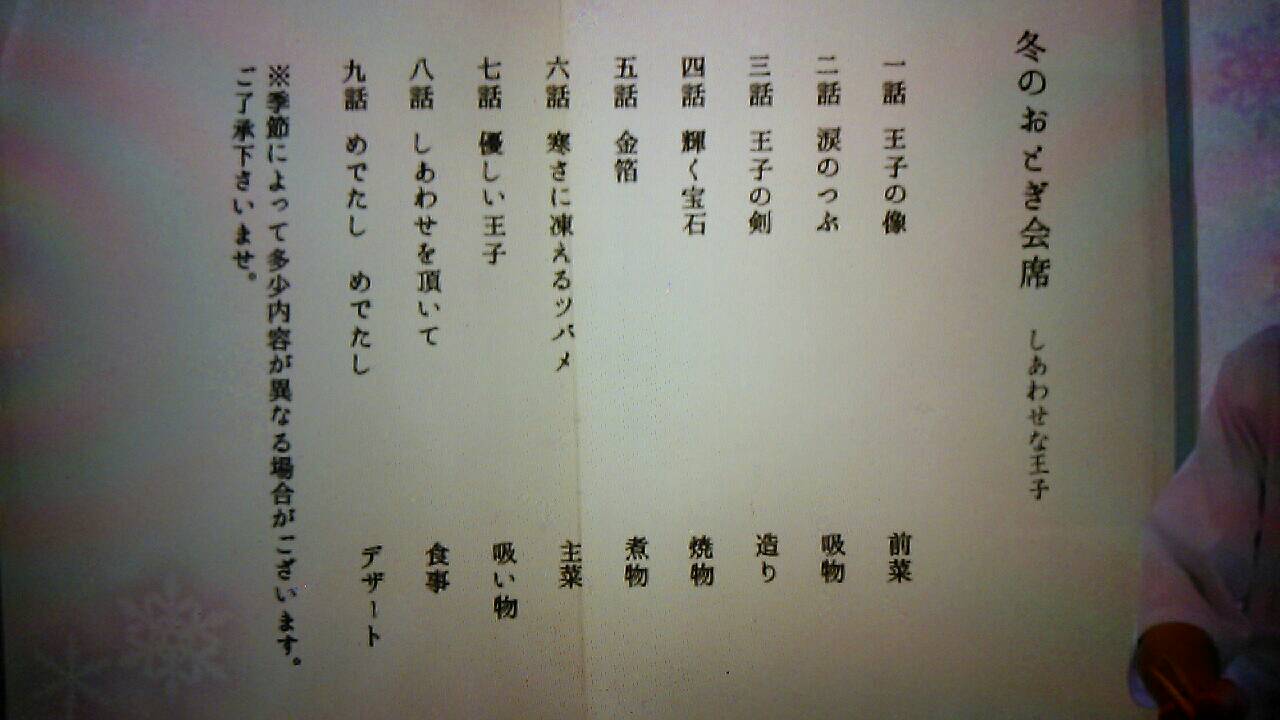 冬のおとぎ会席 しあわせな王子
一話 王子の像 前菜
二話 涙のつぶ 吸物
三話 王子の剣 造り
四話 輝く宝石 焼物
五話 金箔 煮物
六話 寒さに凍えるツバメ 主菜
七話 優しい王子 吸い物
八話 しあわせを頂いて 食事
九話 めでたし めでたし デザート
※季節によって多少内容が異なる場合がございます。
ご了承下さいませ。